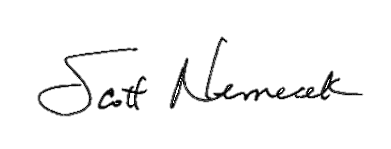 Scott Nemecek